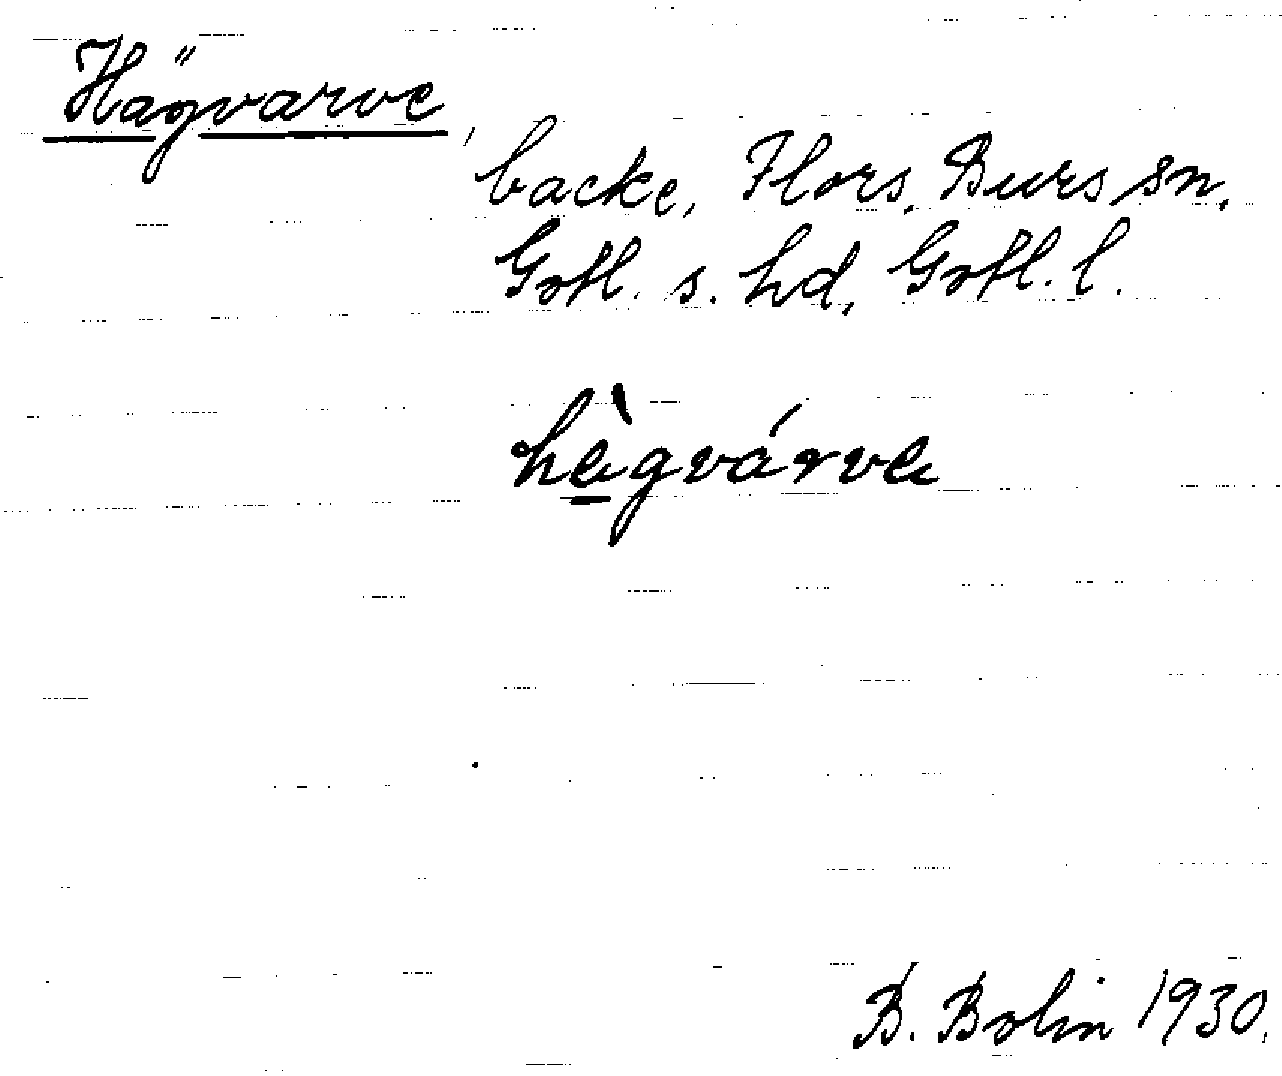 Hägvarve,
backe, Flors, Burs sn.
Gotl. s. hd, Gotl. l.
hègvárve
B. Bolin 1930.